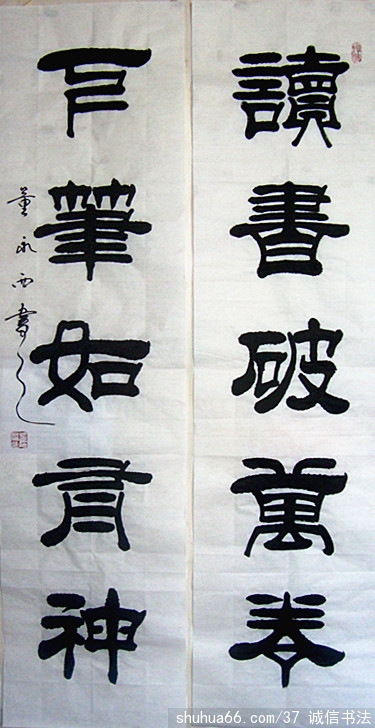 讀書破萬卷
下筆如有神
董永西書
shuhua66.com/37 诚信书法